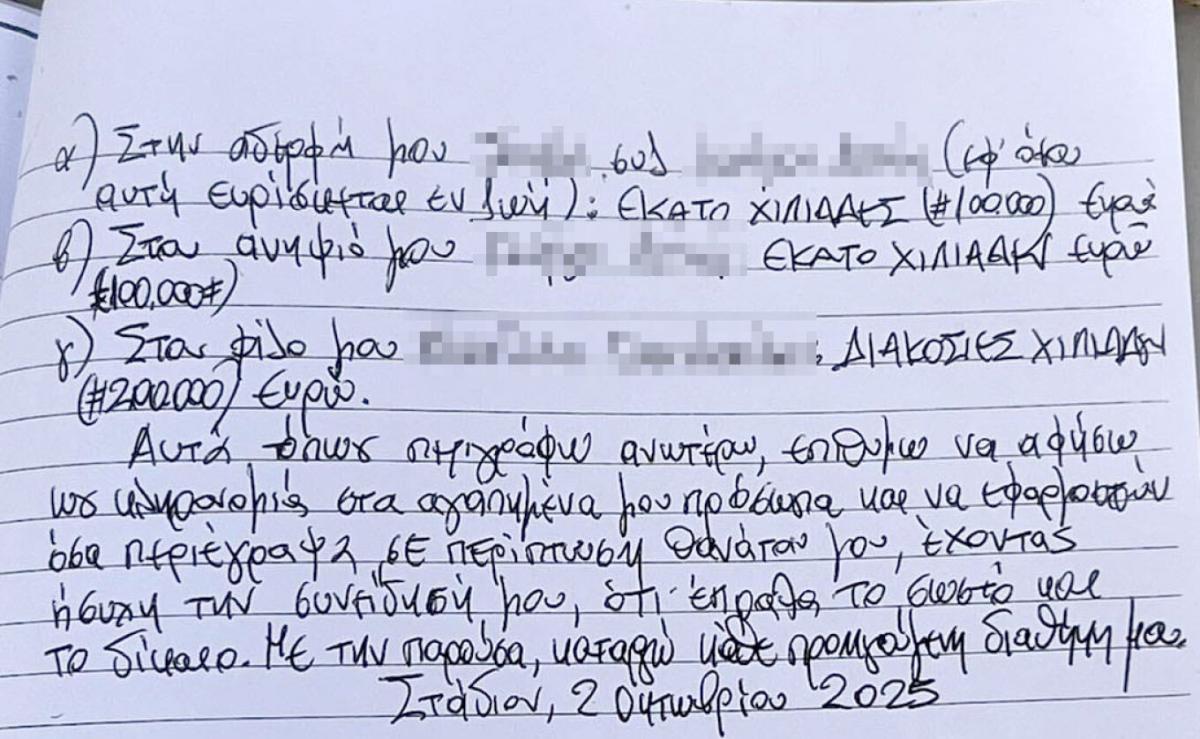 α) Στην αδερφή μου συζ (εφ' όσον
αυτή ευρίσκεται εν ζωή): ΕΚΑΤΟ ΧΙΛΙΑΔΕΣ (#100.000) Ευρώ
β) Στον ανηψιό μου ΕΚΑΤΟ ΧΙΛΙΑΔΕΣ Ευρώ
(#100,000#)
γ) Στον φίλο μου : ΔΙΑΚΟΣΙΕΣ ΧΙΛΙΑΔΕΣ
(#200.000) Ευρώ.
Αυτά όπως περιγράφω ανωτέρω, επιθυμώ να αφήσω
ως κληρονομιάς στα αγαπημένα μου πρόσωπα και να εφαρμοστούν
όσα περιέγραψα σε περίπτωση θανάτου μου, έχοντας
ήσυχη την συνείδησή μου, ότι έπραξα το σωστό και
το δίκαιο. Με την παρούσα, καταργώ κάθε προηγούμενη διαθήκη μου.
Στάδιον, 2 Οκτωβρίου 2025